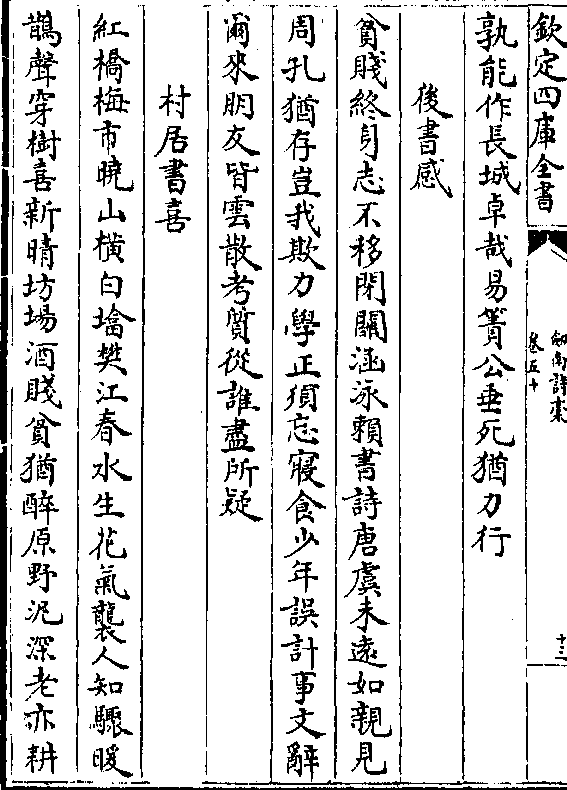 欽定四庫全書
劍南詩稾
卷五十
孰能作長城卓哉易簀公垂死猶力行
後書感
貧賤終身志不移閉關涵泳賴書詩唐虞未遠如親見
周孔猶存豈我欺力學正須忘寢食少年誤計事文辭
爾來朋友皆雲散考質從誰盡所疑
村居書喜
紅橋梅市曉山橫白墖樊江春水生花氣襲人知驟暖
鵲聲穿樹喜新晴坊場酒賤貧猶醉原野泥深老亦耕